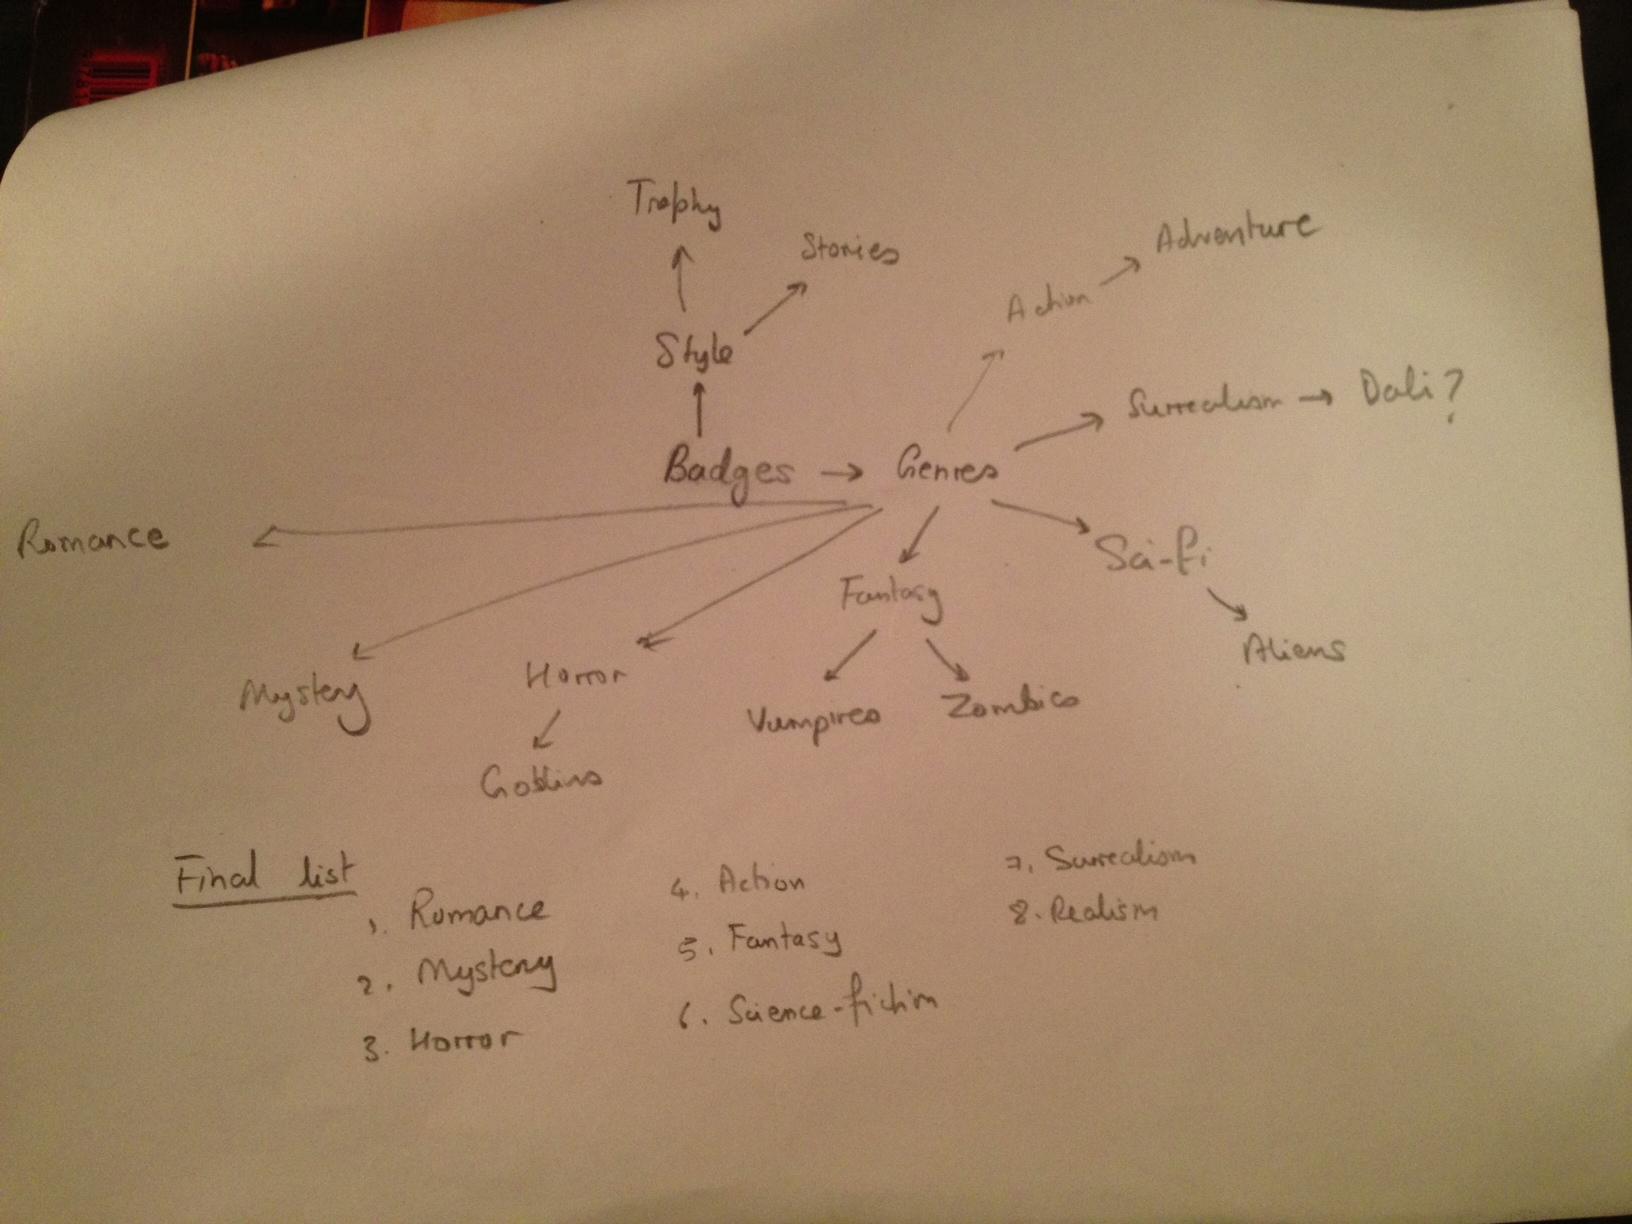 Trophy
Stories
Adventure
Action
Style
Surrealism → Dali?
Badges → Genres
Romance
Sci-fi
Fantasy
Aliens
Mystery
Horror
Vampires
Zombies
Goblins
Final list
1. Romance
2. Mystery
3. Horror
4. Action
5. Fantasy
6. Science-fiction
7. Surrealism
8. Realism